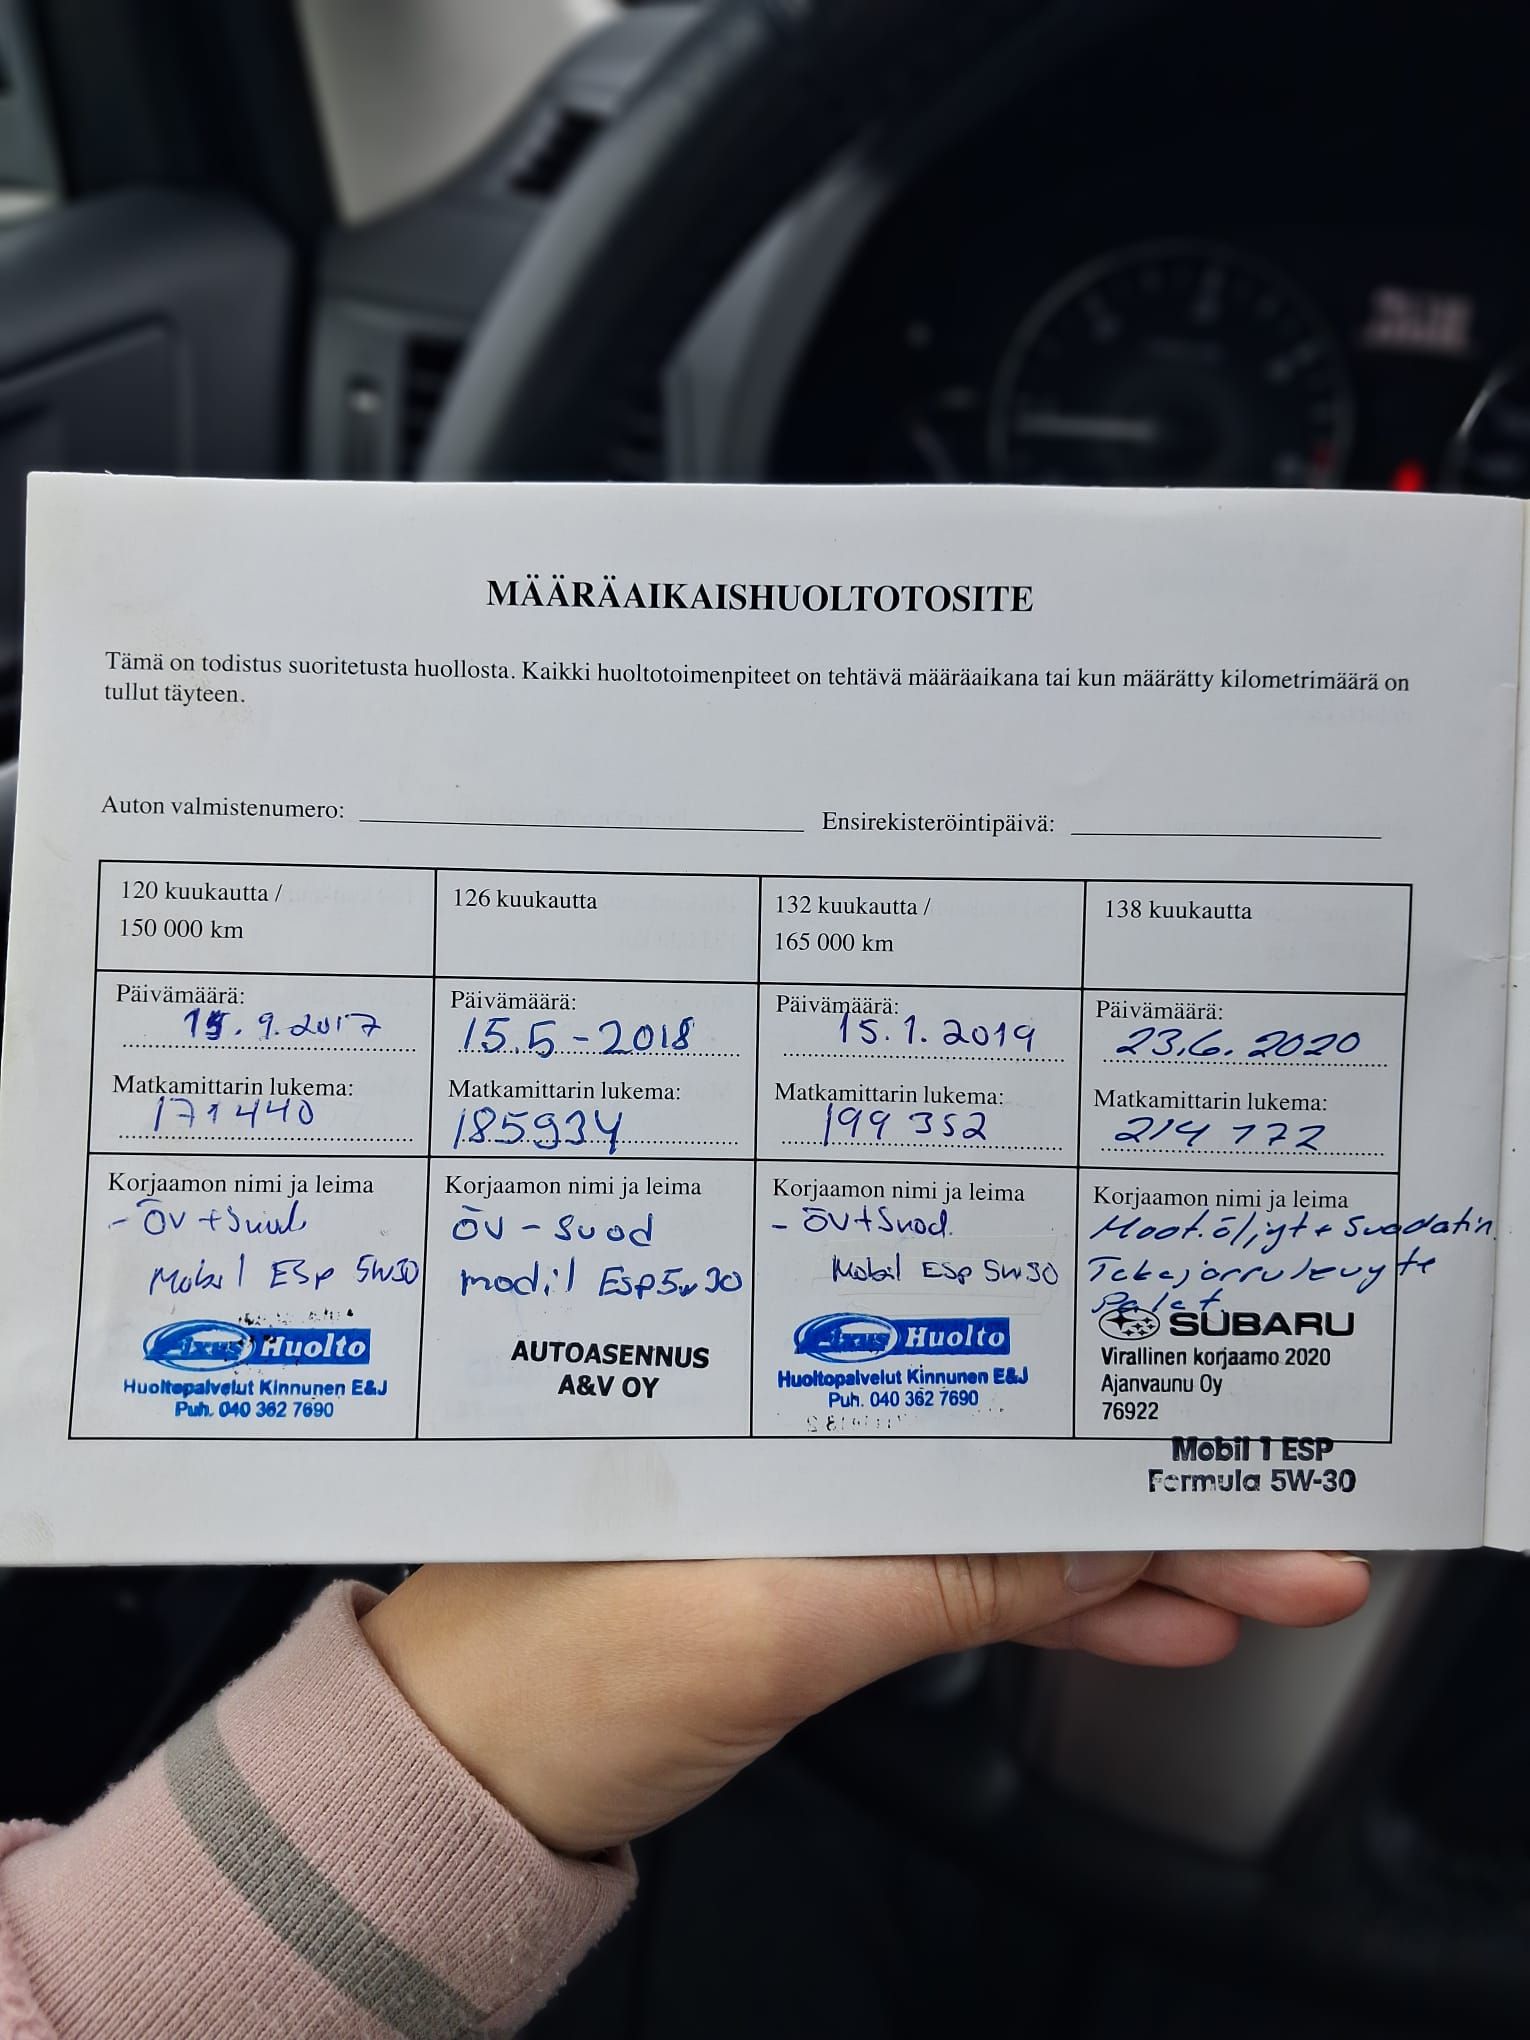 MÄÄRÄAIKAISHUOLTOTOSITE
Tämä on todistus suoritetusta huollosta. Kaikki huoltotoimenpiteet on tehtävä määräaikana tai kun määrätty kilometrimäärä on
tullut täyteen.
Auton valmistenumero:
Ensirekisteröintipäivä:
120 kuukautta /
150 000 km
Päivämäärä:
15.9.2017
Matkamittarin lukema:
171440
Korjaamon nimi ja leima
- ÖV + Suod
Mobil ESp 5w30
Huolto
Huoltopalvelut Kinnunen E&J
Puh. 040 362 7690
126 kuukautta
Päivämäärä:
15.5-2018
Matkamittarin lukema:
185934
Korjaamon nimi ja leima
ÖV - Suod
modil Esp5w30
AUTOASENNUS
A&V OY
132 kuukautta /
165 000 km
Päivämäärä:
15.1.2019
Matkamittarin lukema:
199 352
Korjaamon nimi ja leima
- ÖV+Suod.
Mobil ESp 5w30
Huolto
Huoltopalvelut Kinnunen E&J
Puh. 040 362 7690
138 kuukautta
Päivämäärä:
23.6.2020
Matkamittarin lukema:
214 172
Korjaamon nimi ja leima
Moot.öljyt + Suodatin
Takajarrulevyt +
Palat
SUBARU
Virallinen korjaamo 2020
Ajanvaunu Oy
76922
Mobil 1 ESP
Formula 5W-30